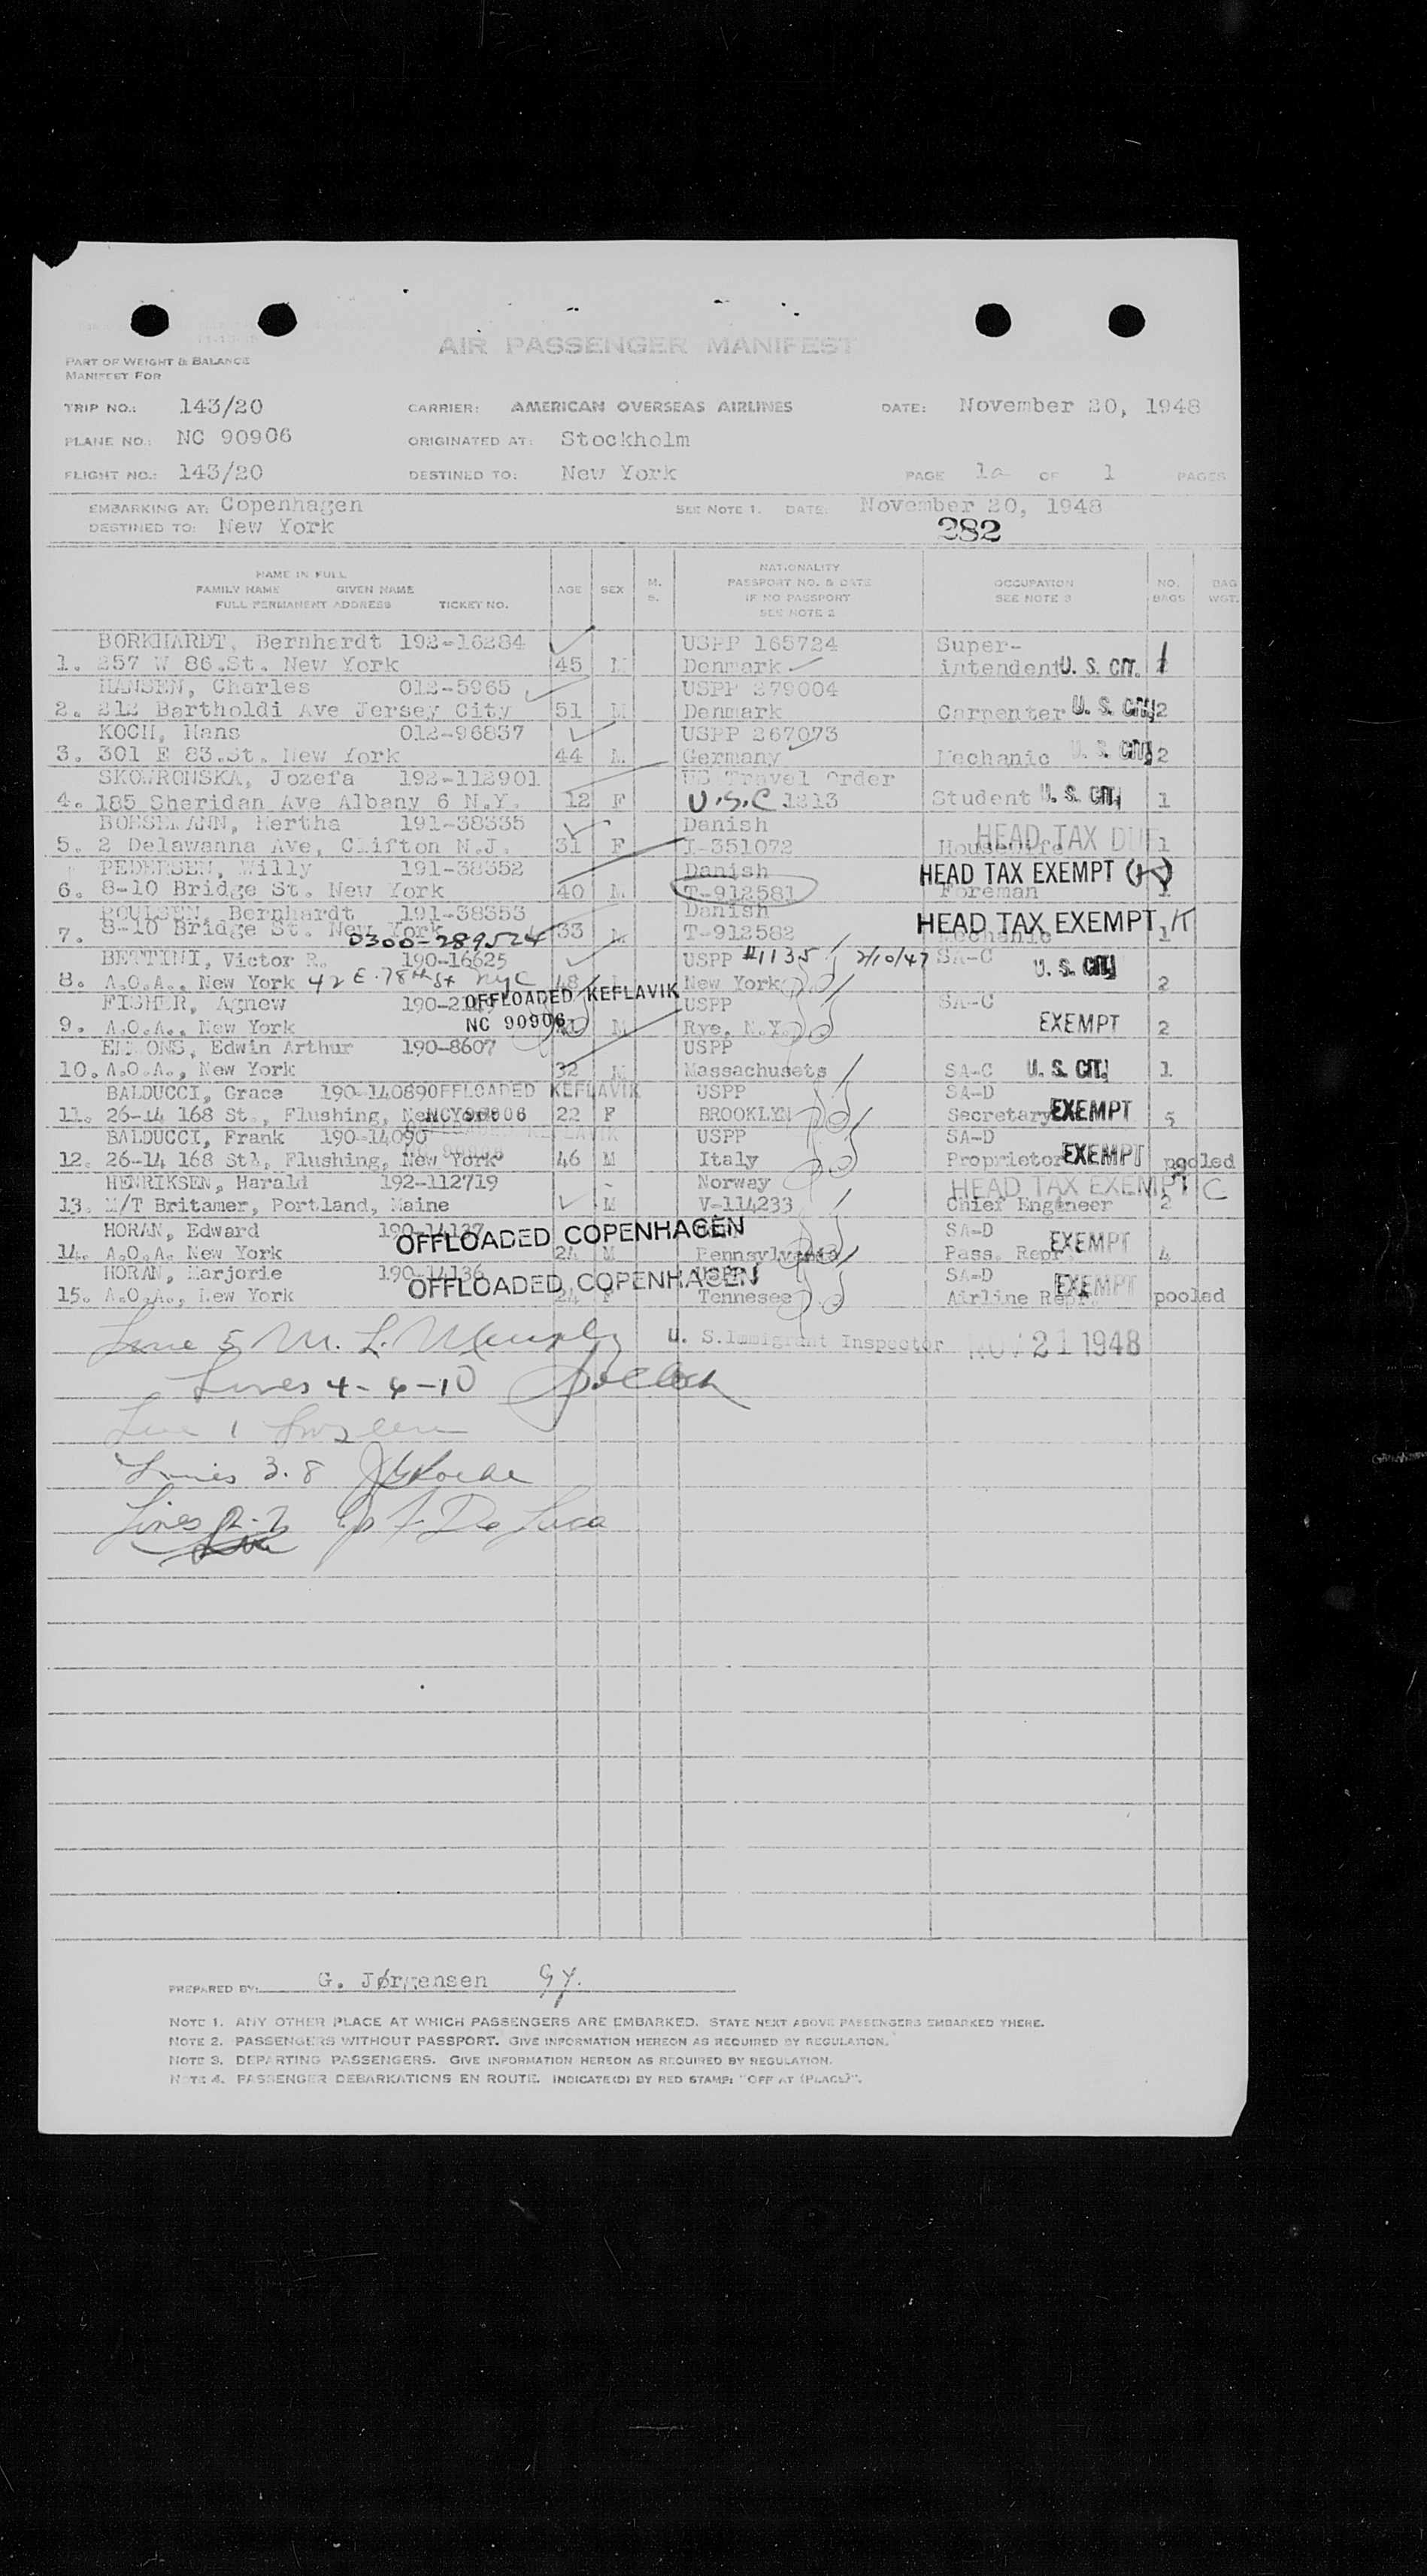 AIR PASSENGER MANIFEST
PART OF WEIGHT & BALANCE
MANIFEST FOR
TRIP NO.: 143/20 CARRIER: AMERICAN OVERSEAS AIRLINES DATE: November 20, 1948
PLANE NO.: NC 90906 ORIGINATED AT: Stockholm
FLIGHT NO.: 143/20 DESTINED TO: New York PAGE 1a OF 1 PAGES
EMBARKING AT: Copenhagen SEE NOTE 1. DATE: November 20, 1948
DESTINED TO: New York 282
NAME IN FULL
FAMILY NAME GIVEN NAME
FULL PERMANENT ADDRESS TICKET NO. AGE SEX M. S. NATIONALITY PASSPORT NO. & DATE IF NO PASSPORT SEE NOTE 2 OCCUPATION SEE NOTE 3 NO. BAGS BAG WGT.
BORKHARDT, Bernhardt 192-16284 USPP 165724 Super-
1. 257 W 86.St. New York 45 M Denmark intendent U. S. CIT. 1
HANSEN, Charles 012-5965 USPP 279004
2. 212 Bartholdi Ave Jersey City 51 M Denmark Carpenter U. S. CIT. 2
KOCH, Hans 012-96837 USPP 267073
3. 301 E 83.St. New York 44 M Germany Mechanic U. S. CIT. 2
SKOWRONSKA, Jozefa 192-112901 US Travel Order
4. 185 Sheridan Ave Albany 6 N.Y. 12 F U.S.C 1213 Student U. S. CIT. 1
Hertha 191-38335 Danish HEAD TAX DUE
5. 2 Delawanna Ave, Clifton N.J. 31 F I-351072 Housewife 1
PEDERSEN, Willy 191-38352 Danish HEAD TAX EXEMPT
6. 8-10 Bridge St. New York 40 M T-912581 Foreman 1
POULSEN, Bernhardt 191-38353 Danish HEAD TAX EXEMPT K
7. 8-10 Bridge St. New York 33 M T-912582 Mechanic 1
0300-289524
BETTINI, Victor R. 190-16625 USPP #1135 2/10/47 SA-C U. S. CIT.
8. A.O.A., New York 42 E. 78th St NYC 48 New York 2
FISHER, Agnew OFFLOADED KEFLAVIK USPP SA-C
9. A.O.A., New York NC 90906 M Rye, N.Y. EXEMPT 2
EMMONS, Edwin Arthur 190-8607 USPP
10. A.O.A., New York 32 M Massachusets SA-C U. S. CIT. 1
BALDUCCI, Grace 190-14089 OFFLOADED KEFLAVIK USPP SA-D
11. 26-14 168 St., Flushing, New York NC 90906 22 F BROOKLYN Secretary EXEMPT 5
BALDUCCI, Frank 190-14090 USPP SA-D
12. 26-14 168 St., Flushing, New York 46 M Italy Proprietor EXEMPT pooled
HENRIKSEN, Harald 192-112719 - Norway HEAD TAX EXEMPT C
13. M/T Britamer, Portland, Maine M V-114233 Chief Engineer 2
HORAN, Edward 190-14137 OFFLOADED COPENHAGEN SA-D
14. A.O.A. New York 24 M Pennsylvania Pass. Repr. EXEMPT 4
HORAN, Marjorie 190-14136 OFFLOADED COPENHAGEN USPP SA-D
15. A.O.A., New York 24 F Tennesee Airline Repr. EXEMPT pooled
Line 5 M. L. Murphy U. S. Immigrant Inspector NOV 21 1948
Lines 4-6-10
Line 1
Lines 3.8
Lines 2-7 De Luca
PREPARED BY: G. Jørgensen
NOTE 1. ANY OTHER PLACE AT WHICH PASSENGERS ARE EMBARKED. STATE NEXT ABOVE PASSENGERS EMBARKED THERE.
NOTE 2. PASSENGERS WITHOUT PASSPORT. GIVE INFORMATION HEREON AS REQUIRED BY REGULATION.
NOTE 3. DEPARTING PASSENGERS. GIVE INFORMATION HEREON AS REQUIRED BY REGULATION.
NOTE 4. PASSENGER DEBARKATIONS EN ROUTE. INDICATE(D) BY RED STAMP: "OFF AT (PLACE)".